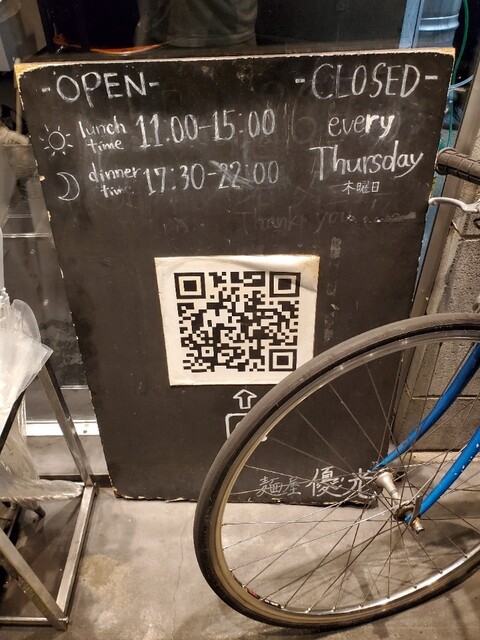 -OPEN-
lunch time 11:00-15:00
dinner time 17:30-22:00
-CLOSED-
every
Thursday
木曜日
Thank you
麺屋 優光